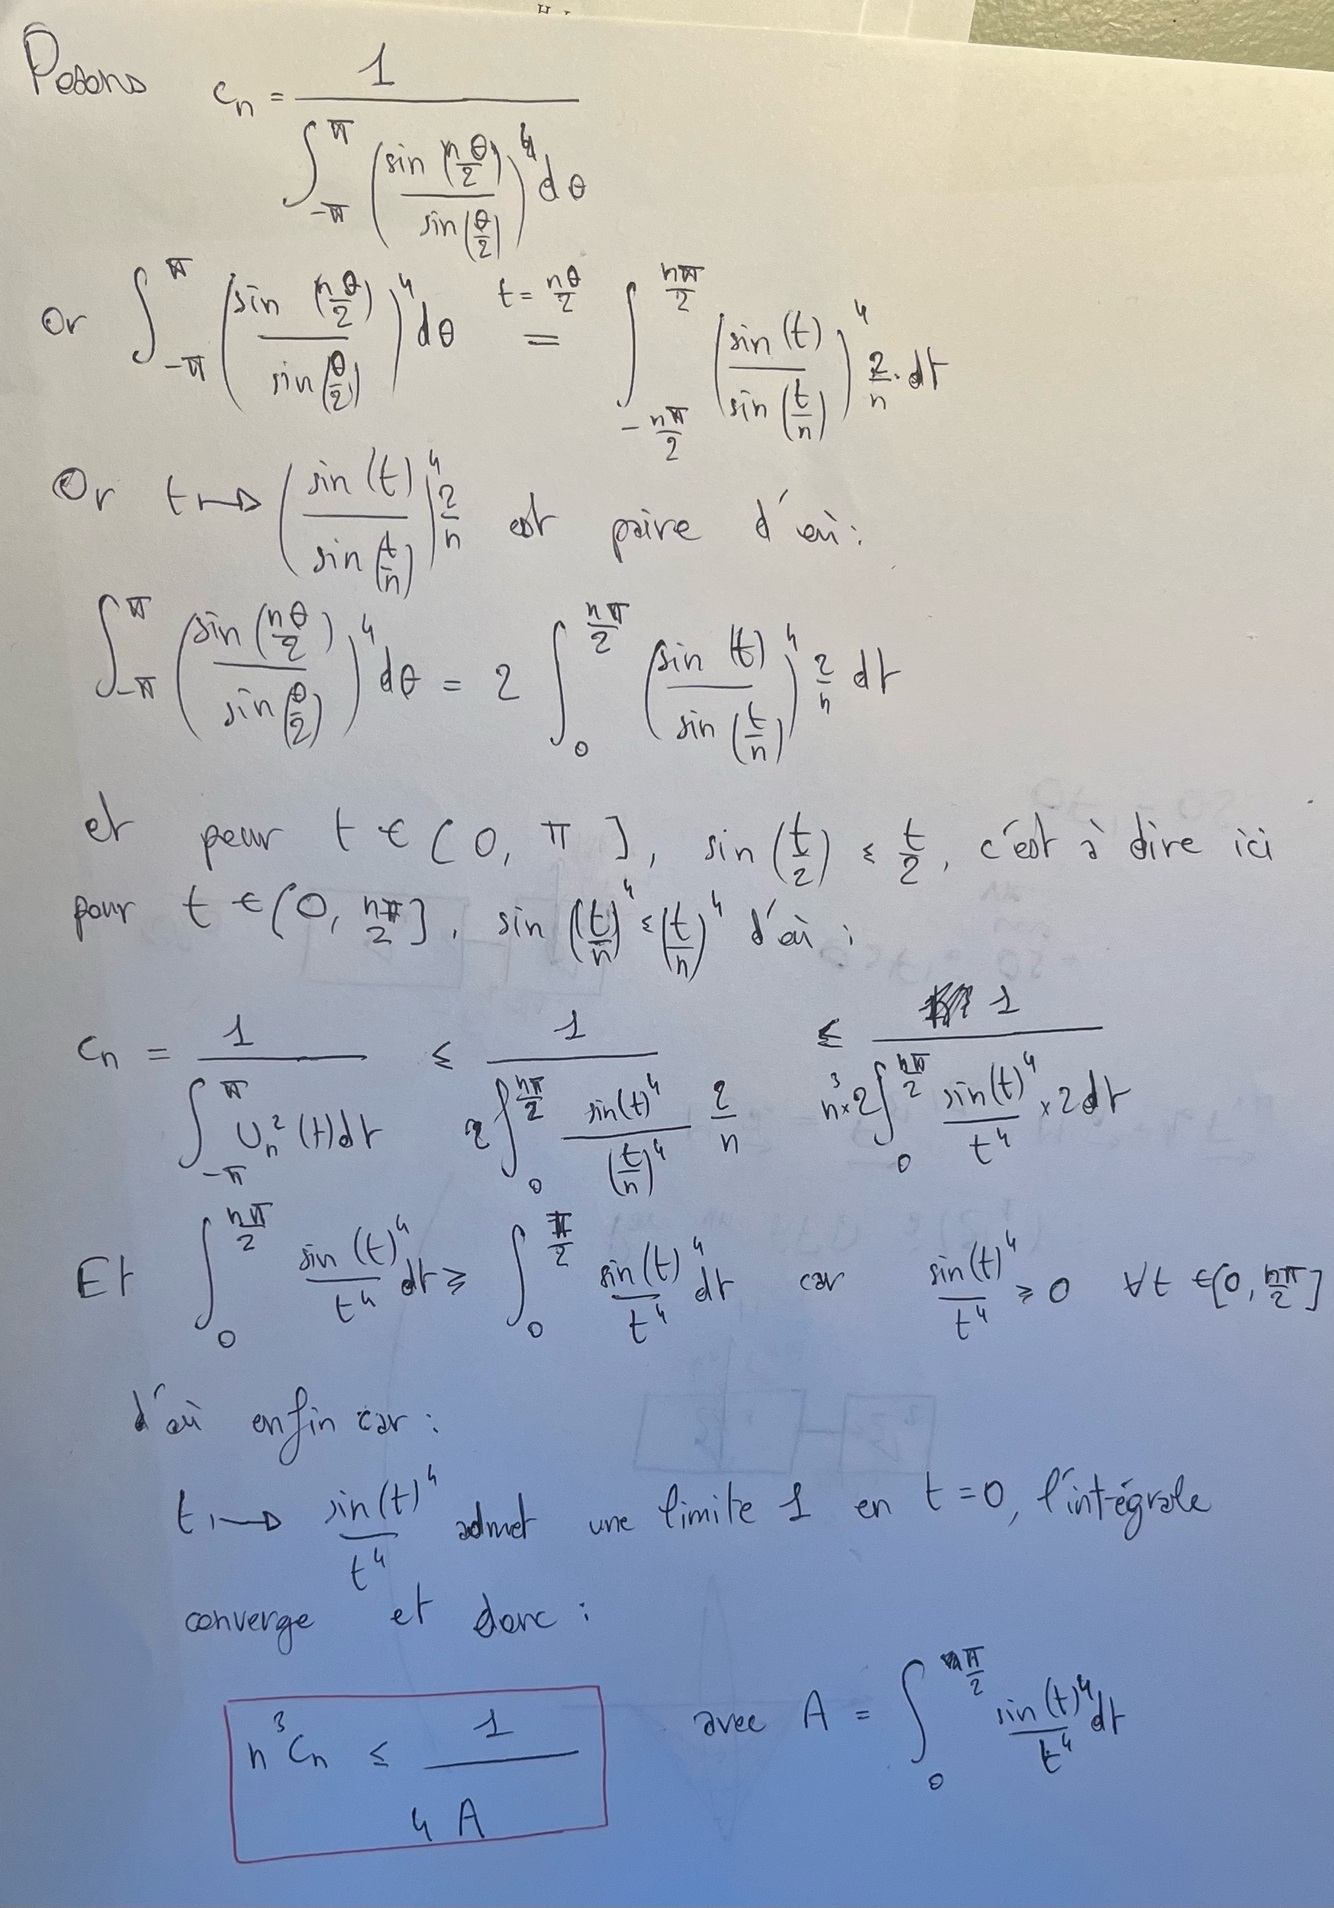 Posons c_n = 1 / ∫_{-π}^{π} (sin(nθ/2) / sin(θ/2))^4 dθ
Or ∫_{-π}^{π} (sin(nθ/2) / sin(θ/2))^4 dθ =^{t = nθ/2} ∫_{-nπ/2}^{nπ/2} (sin(t) / sin(t/n))^4 2/n . dt
Or t ↦ (sin(t) / sin(t/n))^4 2/n est paire d'où :
∫_{-π}^{π} (sin(nθ/2) / sin(θ/2))^4 dθ = 2 ∫_0^{nπ/2} (sin(t) / sin(t/n))^4 2/n dt
et pour t ∈ [0, π], sin(t/2) ≤ t/2, c'est à dire ici
pour t ∈ [0, nπ/2], sin(t/n)^4 ≤ (t/n)^4 d'où :
c_n = 1 / ∫_{-π}^{π} U_n^2(t) dt ≤ 1 / 2∫_0^{nπ/2} sin(t)^4 / (t/n)^4 2/n ≤ 1 / n^3 × 2∫_0^{nπ/2} sin(t)^4 / t^4 × 2 dt
Et ∫_0^{nπ/2} sin(t)^4 / t^4 dt ≥ ∫_0^{π/2} sin(t)^4 / t^4 dt car sin(t)^4 / t^4 ≥ 0 ∀t ∈ [0, nπ/2]
d'où enfin car :
t ↦ sin(t)^4 / t^4 admet une limite 1 en t = 0, l'intégrale
converge et donc :
n^3 c_n ≤ 1 / 4A avec A = ∫_0^{π/2} sin(t)^4 / t^4 dt